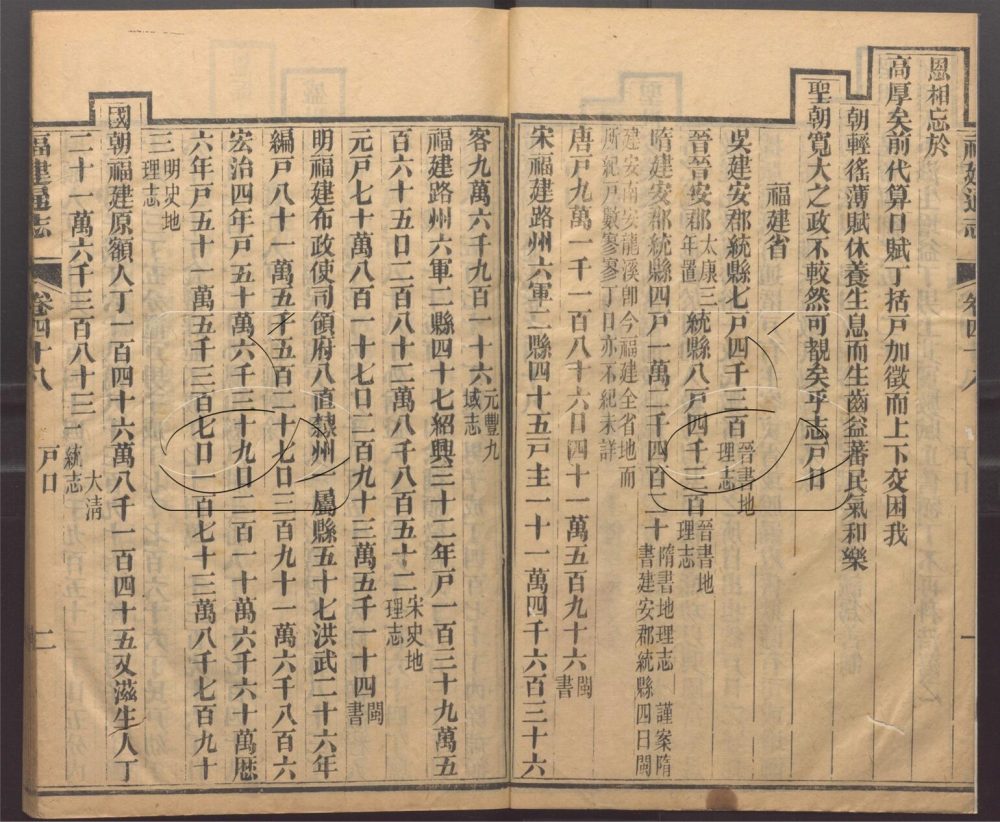 恩相忘於
高厚矣前代算口賦丁括戶加徵而上下交困我
朝輕徭薄賦休養生息而生齒益蕃民氣和樂
聖朝寬大之政不較然可覩矣乎志戶口
福建省
吳建安郡統縣七戶四千三百晉書地理志
晉晉安郡太康三年置統縣八戶四千三百晉書地理志
隋建安郡統縣四戶一萬二千四百二十隋書地理志 謹案隋書建安郡統縣四曰閩
建安南安龍溪卽今福建全省地而所紀戶數寥寥丁口亦不紀未詳
唐戶九萬一千一百八十六口四十一萬五百九十六閩書
宋福建路州六軍二縣四十五戶主一十一萬四千六百三十六
福建通志
卷四十八
一
客九萬六千九百一十六元豐九域志
福建路州六軍二縣四十七紹興三十二年戶一百三十九萬五
百六十五口二百八十二萬八千八百五十二宋史地理志
元戶七十萬八百一十七口二百九十三萬五千一十四閩書
明福建布政使司領府八直隸州一屬縣五十七洪武二十六年
編戶八十一萬五千五百二十七口三百九十一萬六千八百六
宏治四年戶五十萬六千三十九口二百一十萬六千六十萬歷
六年戶五十一萬五千三百七口一百七十三萬八千七百九十
三明史地理志
國朝福建原額人丁一百四十六萬八千一百四十五又滋生人丁
二十一萬六千三百八十三大淸一統志
福建通志
卷四十八
戶口
二